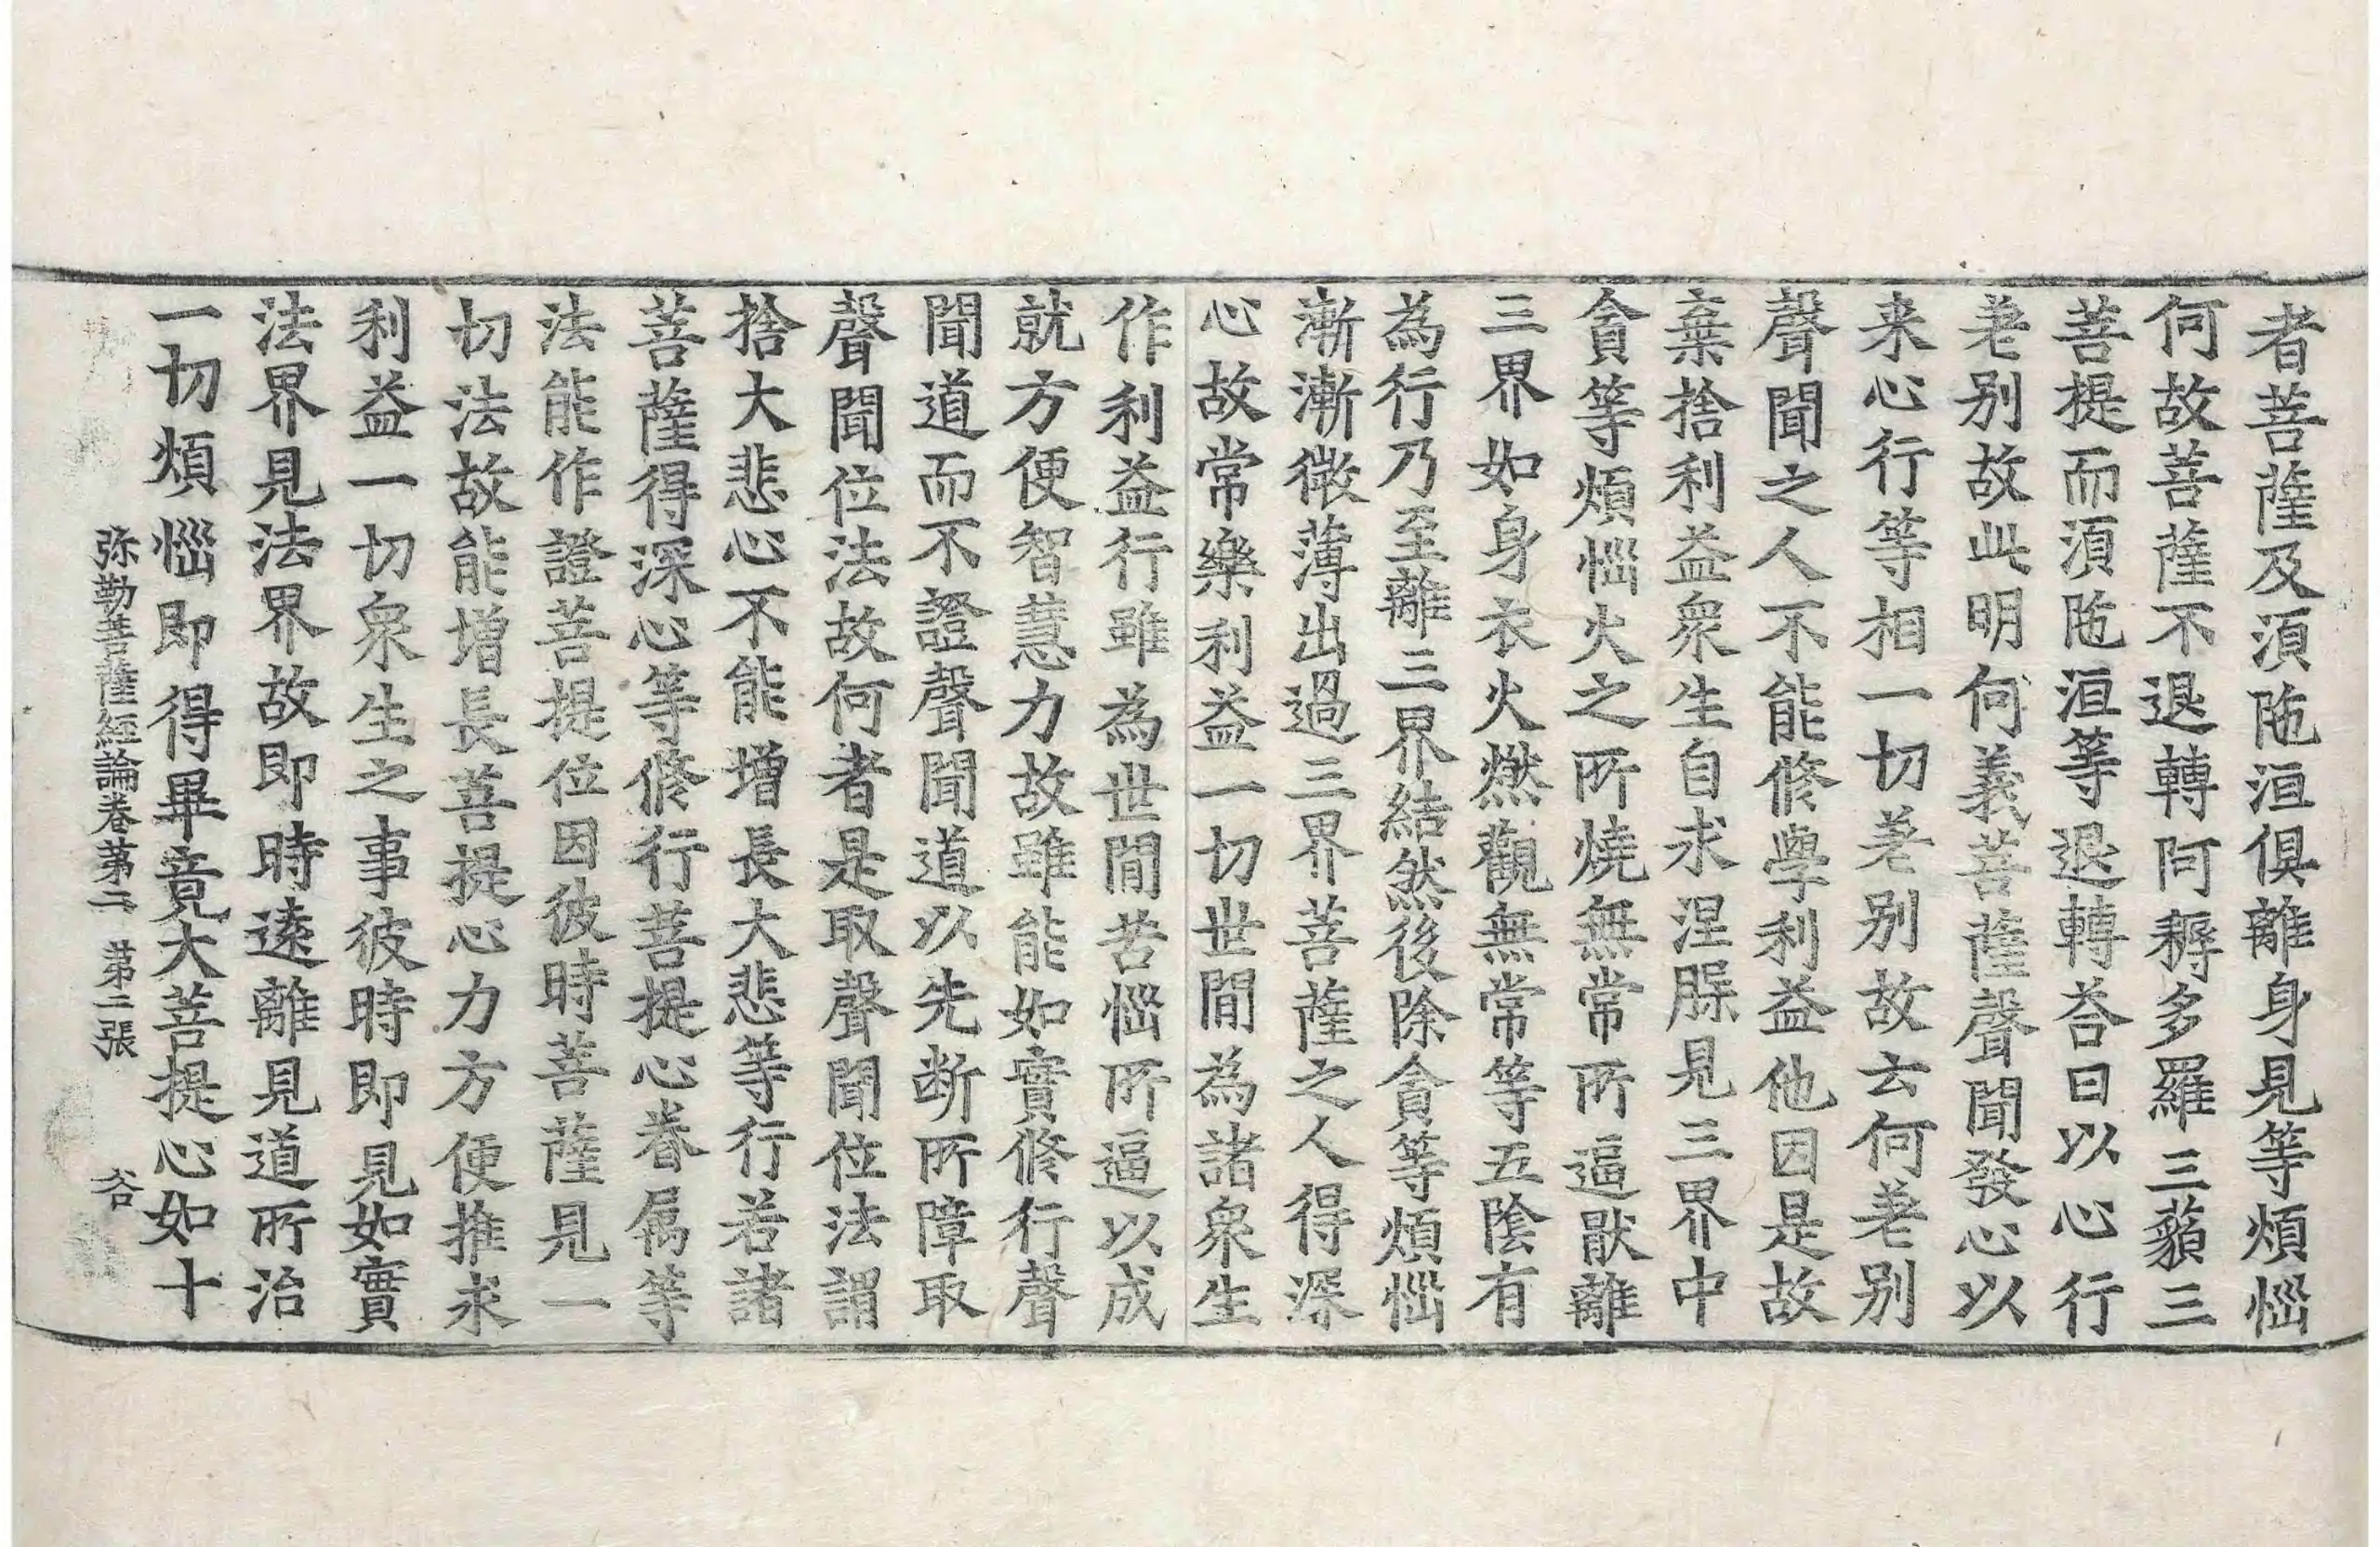 者菩薩及湏陁洹俱離身見等煩惱
何故菩薩不退轉阿耨多羅三藐三
菩提而湏陁洹等退轉荅曰以心行
差别故此明何義菩薩聲聞發心以
来心行等相一切差别故云何差别
聲聞之人不能修學利益他因是故
棄捨利益衆生自求涅槃見三界中
貪等煩惱火之所燒無常所逼猒離
三界如身衣火燃觀無常等五陰有
為行乃至離三界結然後除貪等煩惱
漸漸微薄出過三界菩薩之人得深
心故常樂利益一切世間為諸衆生
作利益行雖為世間苦惱所逼以成
就方便智慧力故雖能如實修行聲
聞道而不證聲聞道以先断所障取
聲聞位法故何者是取聲聞位法謂
捨大悲心不能增長大悲等行若諸
菩薩得深心等修行菩提心眷属等
法能作證菩提位因彼時菩薩見一
切法故能增長菩提心力方便推求
利益一切衆生之事彼時即見如實
法界見法界故即時遠離見道所治
一切煩惱即得畢竟大菩提心如十
弥勒菩薩經論卷苐二 苐二張 谷